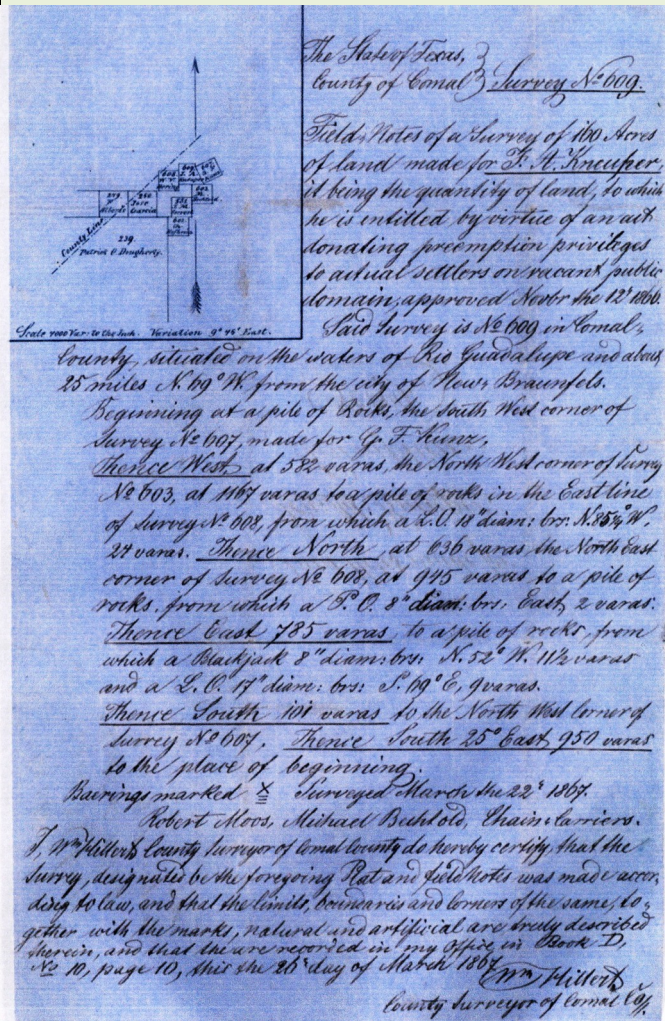 The State of Texas,
County of Comal } Survey No 609.
Field Notes of a Survey of 160 Acres
of land made for F. A. Kneuper,
it being the quantity of land, to which
he is entitled by virtue of an act
donating preemption privileges
to actual settlers on vacant public
domain, approved Novbr the 12t 1866.
Said Survey is No 609 in Comal-
County, situated on the waters of Rio Guadalupe and about
25 miles N. 69° W. from the city of New-Braunfels.
Beginning at a pile of Rocks, the South West corner of
Survey No 607, made for G. F. Kunz,
Thence West, at 582 varas, the North West corner of Survey
No 603, at 1167 varas to a pile of rocks in the East line
of Survey No 608, from which a L.O. 18" diam: brs: N. 85½° W.
27 varas. Thence North, at 636 varas the North East
corner of Survey No 608, at 945 varas to a pile of
rocks, from which a P. O. 8" diam: brs: East, 2 varas.
Thence East 785 varas, to a pile of rocks, from
which a Blackjack 8" diam: brs: N. 52° W. 11½ varas
and a L. O. 17" diam: brs: S. 69° E, 9 varas.
Thence South 101 varas to the North West Corner of
Survey No 607. Thence South 25° East 950 varas
to the place of beginning.
Baerings marked X Surveyed March the 22t 1867.
Robert Moos, Michael Buhtold, Chain-Carriers.
I, Wm Hillert County Surveyor of Comal County do hereby certify, that the
Surry, designated be the foregoing Plat and field notes was made accor-
ding to law, and that the limits, boundaries and corners of the same, to-
gether with the marks, natural and artificial are truly described
therein, and that the are recorded in my office in Book D,
No 10, page 10, this the 26t day of March 1867.
Wm Hillert
County Surveyor of Comal Coy.
County Line
239.
Patrick O. Dougherty.
Scale 4000 Var: to the Inch. Variation 9° 46' East.